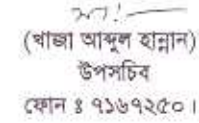 (খাজা আব্দুল হান্নান)
উপসচিব
ফোন ঃ ৭১৬৭২৫০।